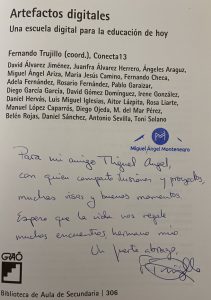 Artefactos digitales
Una escuela digital para la educación de hoy
Fernando Trujillo (coord.), Conecta13
David Álvarez Jiménez, Juanfra Álvarez Herrero, Ángeles Araguz,
Miguel Ángel Ariza, María Jesús Camino, Fernando Checa,
Adela Fernández, Rosario Fernández, Pablo Garaizar,
Diego García García, David Gómez Domínguez, Irene González,
Daniel Hervás, Luis Miguel Iglesias, Aitor Lázpita, Rosa Liarte,
Manuel López Caparrós, Diego Ojeda, M. del Mar Pérez,
Belén Rojas, Daniel Sánchez, Antonio Sevilla, Toni Solano
Miguel Ángel Montenegro
Para mi amigo Miguel Ángel,
con quien comparto ilusiones y proyectos,
muchas risas y buenos momentos
Espero que la vida nos regale
muchos encuentros hermano mío
Un fuerte abrazo,
GRAÓ
Biblioteca de Aula de Secundaria | 306